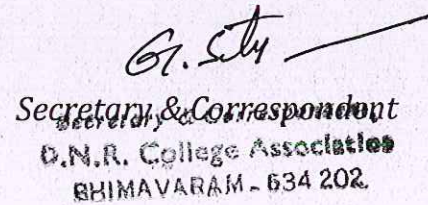 Secretary & Correspondent
Secretary & Correspondent
D.N.R. College Association
BHIMAVARAM - 534 202.